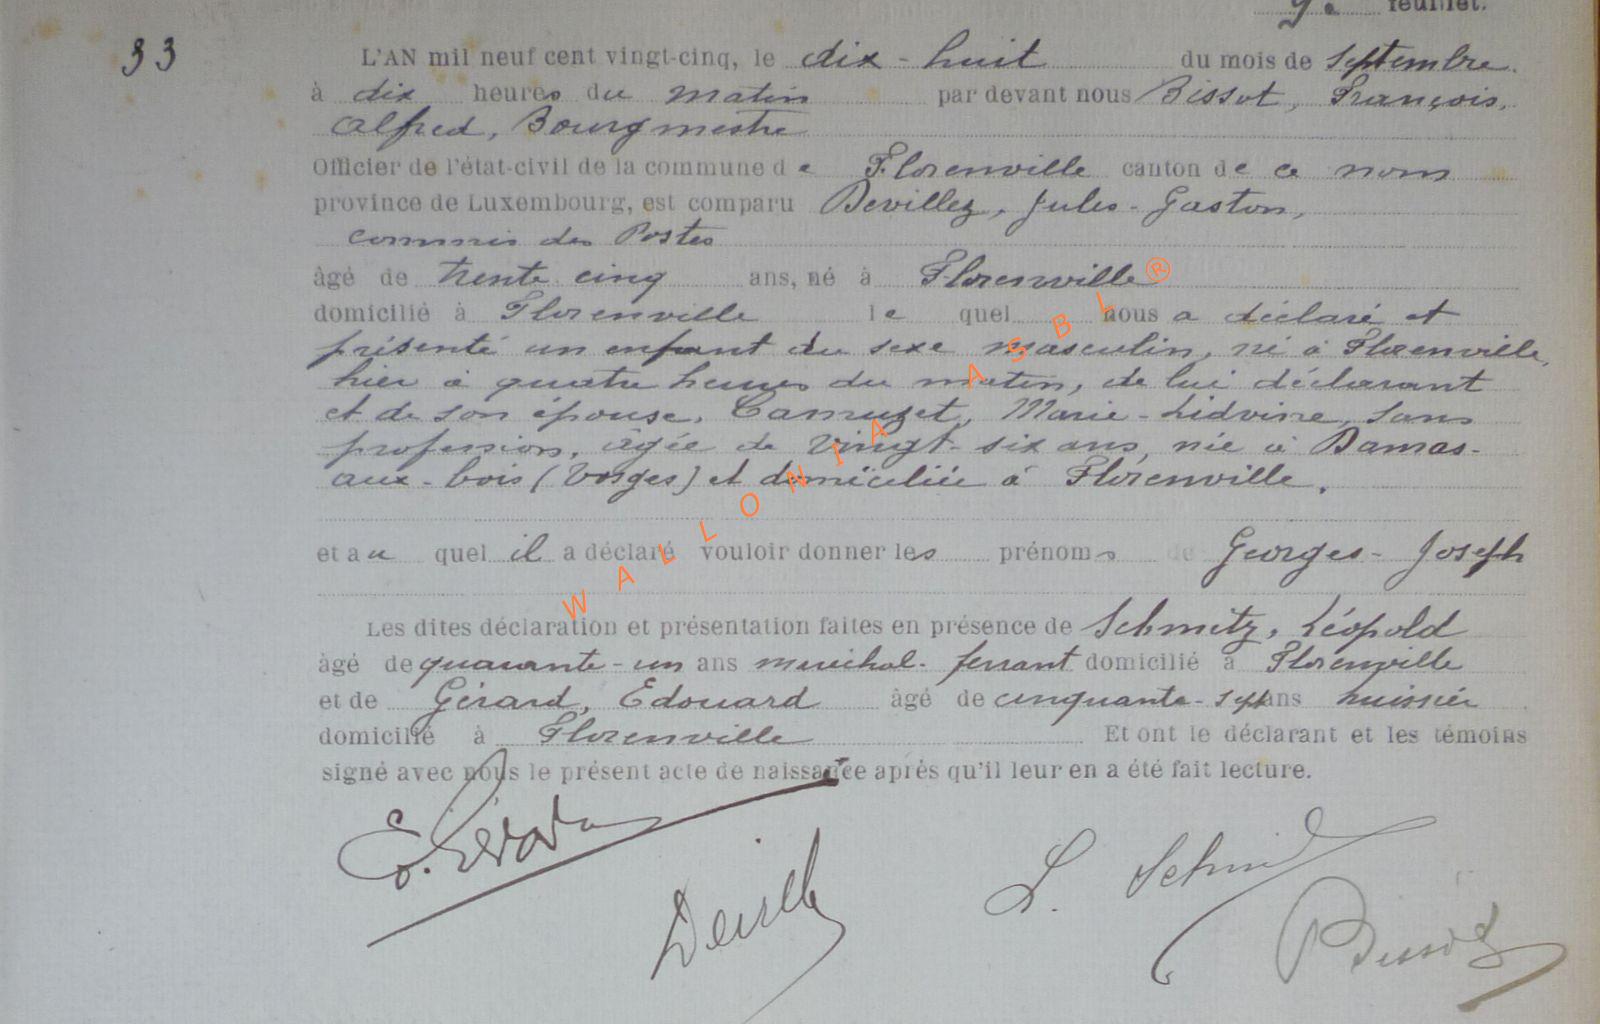 9e feuillet.
33
L'AN mil neuf cent vingt-cinq, le dix-huit du mois de septembre.
à dix heures du matin par devant nous Bissot, François,
Alfred, Bourgmestre
Officier de l'état-civil de la commune de Florenville canton de ce nom
province de Luxembourg, est comparu Devillez, Jules-Gaston,
commis des Postes
âgé de trente cinq ans, né à Florenville
domicilié à Florenville le quel nous a déclaré et
présenté un enfant du sexe masculin, né à Florenville,
hier à quatre heures du matin, de lui déclarant
et de son épouse, Camuzet, Marie-Lidvine, sans
profession, âgée de vingt-six ans, née à Damas-
aux-bois (Vosges) et domiciliée à Florenville.
et au quel il a déclaré vouloir donner les prénoms de Georges-Joseph
Les dites déclaration et présentation faites en présence de Schmitz, Léopold
âgé de quarante-un ans maréchal-ferrant domicilié à Florenville
et de Gérard, Edouard âgé de cinquante-sept ans huissier
domicilié à Florenville Et ont le déclarant et les témoins
signé avec nous le présent acte de naissance après qu'il leur en a été fait lecture.
E. Gérard
Devillez
L. Schmitz
Bissot
WALLONIA ASBL ®